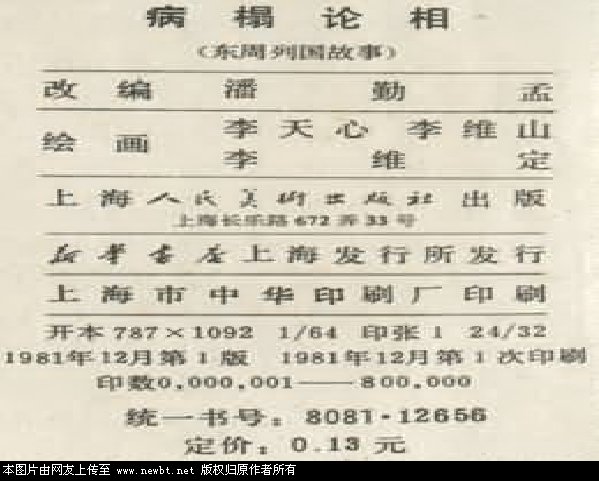 病榻论相
(东周列国故事)
改编 潘勤孟
绘画 李天心 李维山
李维定
上海人民美术出版社出版
上海长乐路672弄33号
新华书店上海发行所发行
上海市中华印刷厂印刷
开本787×1092 1/64 印张1 24/32
1981年12月第1版 1981年12月第1次印刷
印数0,000,001——800,000
统一书号：8081·12656
定价：0.13元
本图片由网友上传至 www.newbt.net 版权归原作者所有